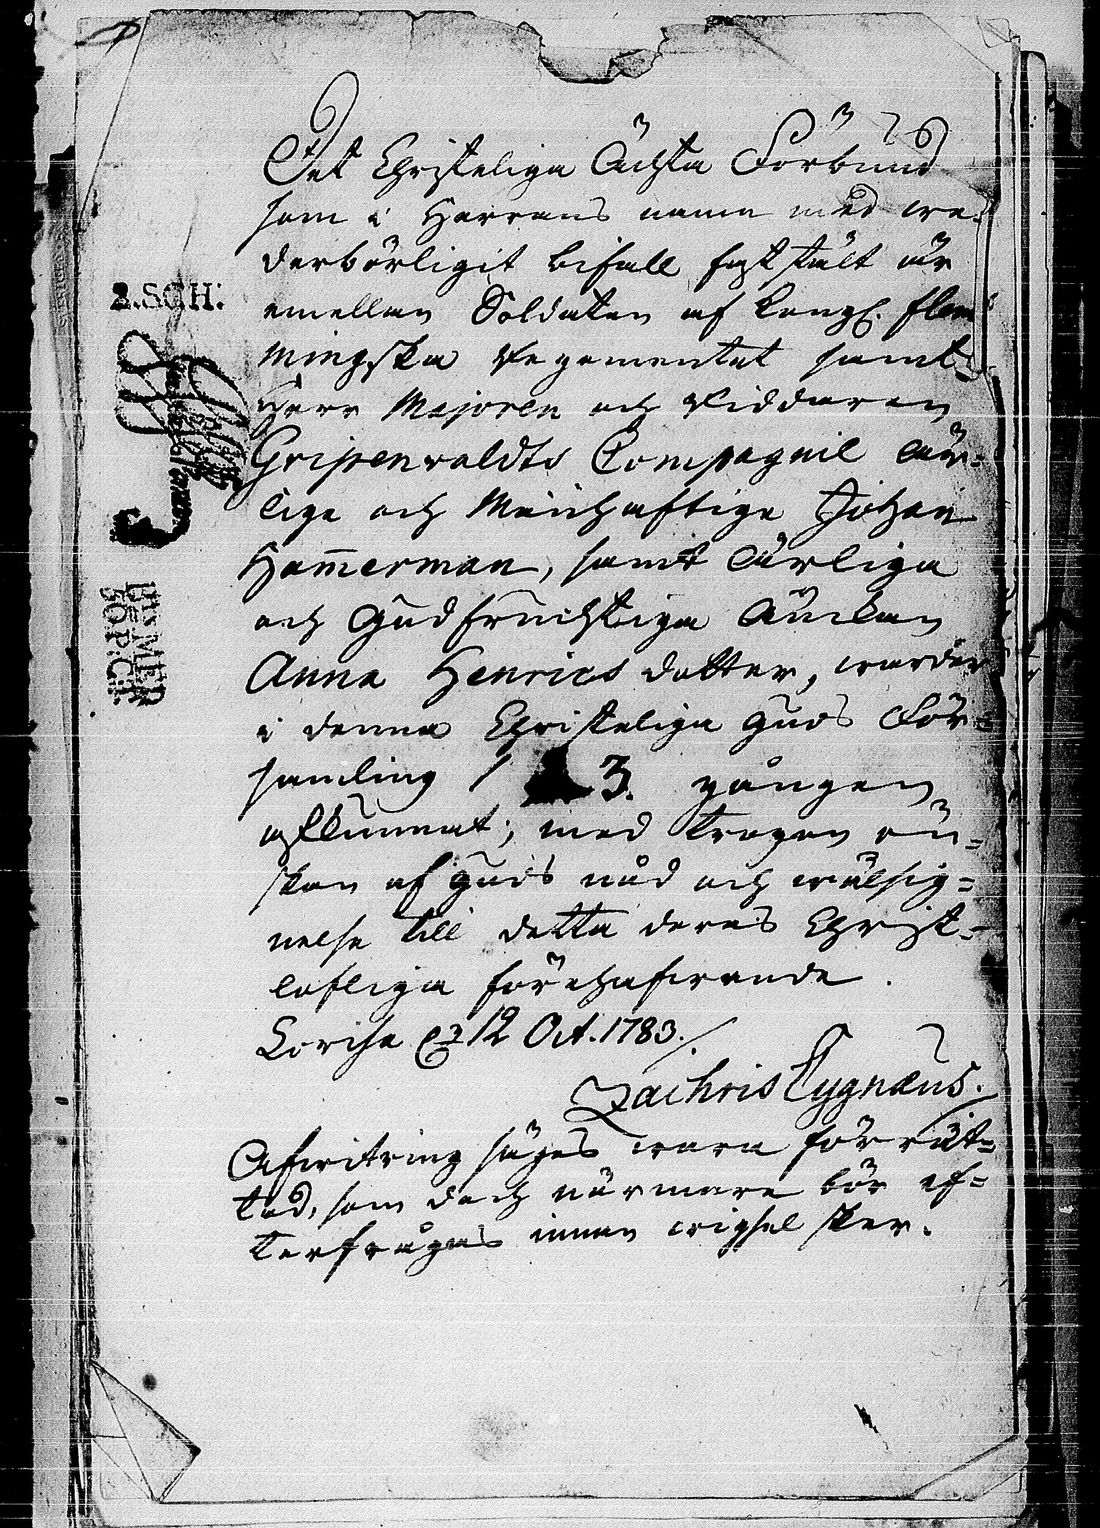 Det Christeliga Ächta Förbund
som i Herrans namn med we-
derbörligit bifall fast stält är
emellan Soldaten af Kongl. Flem
mingska Regementet samt
Herr Majoren och Riddaren
Gripenwaldts Compagnie Ähr-
lige och Manhaftige Johan
Hammerman, samt Ärliga
och Gudfruchtiga Änckan
Anna Henrics dotter, warder
i denna Christeliga Guds För-
samling 3. gången
afkunnat; med trogen ön-
skan af Guds nåd och wälsig-
nelse till detta deras Christ-
lofliga förehafwande.
12 Oct. 1783.
Zachris Cygnæus.
Afwitring säges wara förrät-
tad, som doch närmare bör ef-
terfrågas innan wigsel sker.
2.SCH: